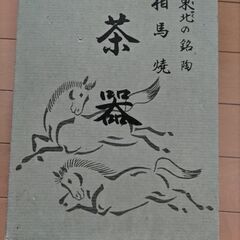 東北の銘陶
相馬焼
茶器